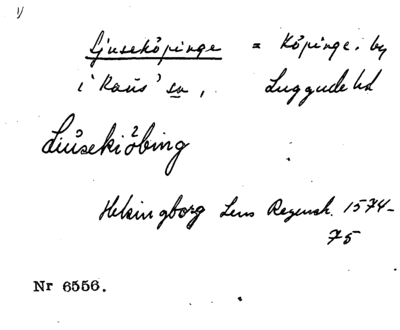 1)
Ljusekö̈pinge = Köpinge, by
i Raus sn, Luggude hd
Liusekiöbing
Helsingborg Lens Regensk. 1574-
75
Nr 6556.